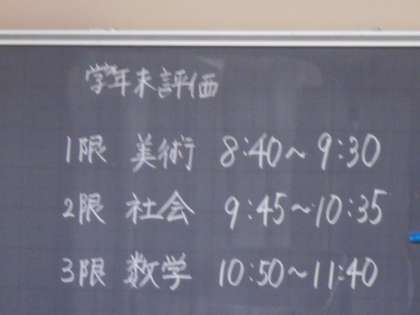 学年末評価
1限 美術 8:40～9:30
2限 社会 9:45～10:35
3限 数学 10:50～11:40